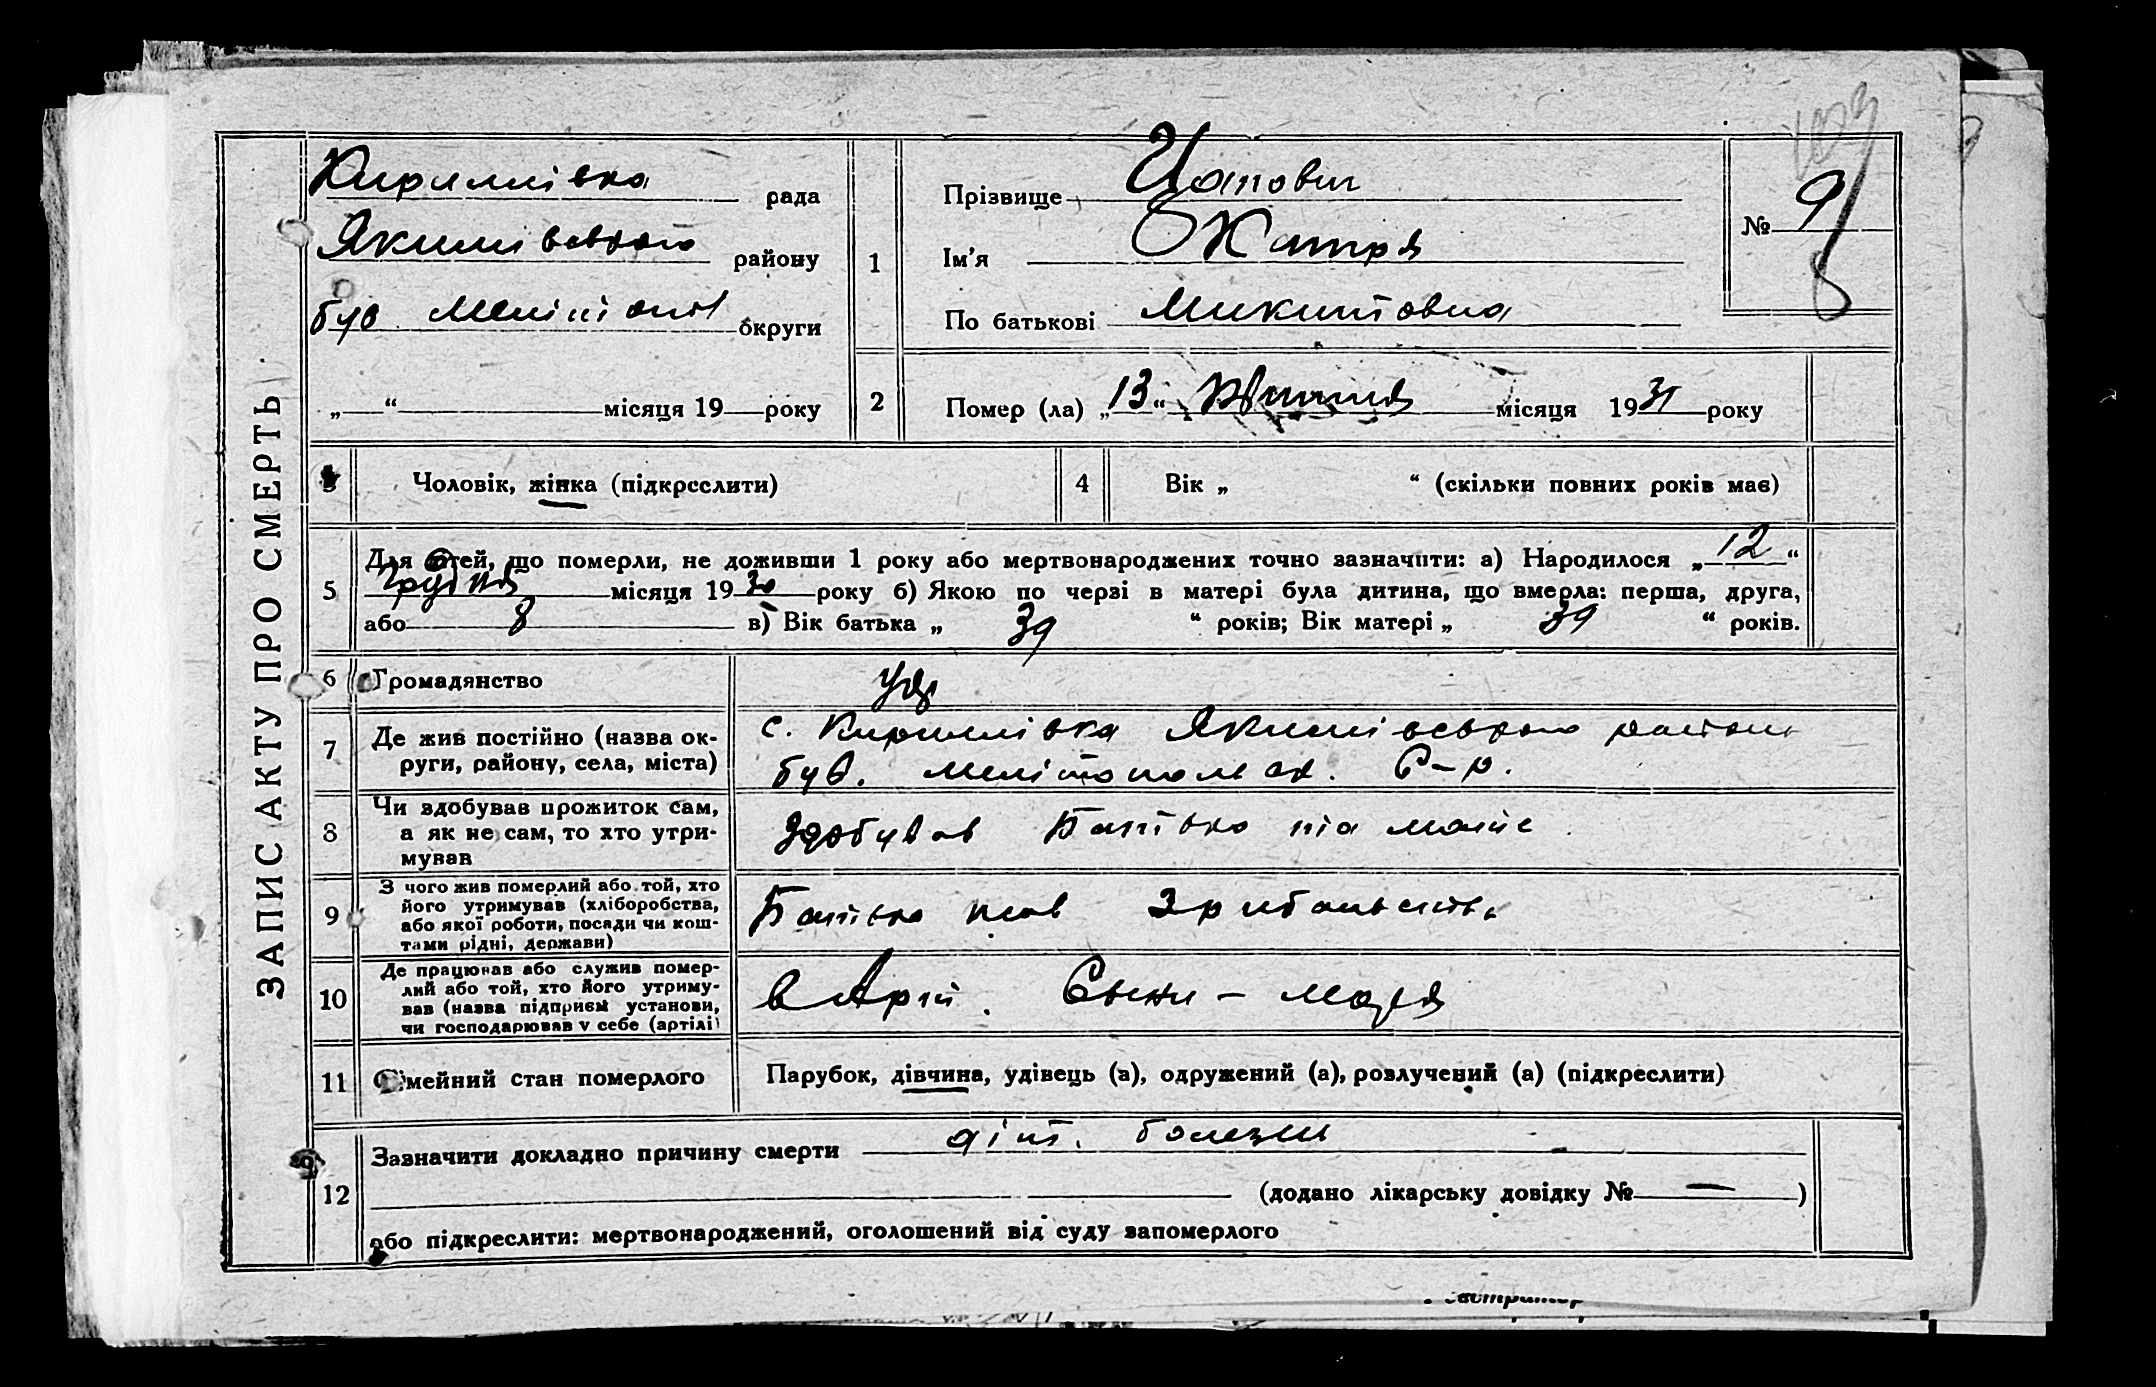 ЗАПИС АКТУ ПРО СМЕРТЬ.
Кирилівка рада
Якимівського району
був Меліт округи
„ “ місяця 19 року
1
Прізвище
Ім'я Катря
По батькові Микитовна
№ 9
2
Помер (ла) „13“ Квітня місяця 1931 року
3
Чоловік, жінка (підкреслити)
4
Вік „ “ (скільки повних років має)
5
Для дітей, що померли, не доживши 1 року або мертвонароджених точно зазначити: а) Народилося „12“
грудня місяця 1930 року б) Якою по черзі в матері була дитина, що вмерла: перша, друга,
або 8 в) Вік батька „ 39 “ років; Вік матері „ 39 “ років.
6
Громадянство
укр
7
Де жив постійно (назва ок-
руги, району, села, міста)
с. Кирилівка Якимівського району
був. Мелітопольск. р.
8
Чи здобував прожиток сам,
а як не сам, то хто утри-
мував
Здобував Батько та мати
9
З чого жив померлий або той, хто
його утримував (хліборобства,
або якої роботи, посади чи кош-
тами рідні, держави)
Батько жив З рибальства
10
Де працював або служив помер-
лий або той, хто його утриму-
вав (назва підприєм установи,
чи господарював у себе (артілі)
в Артіл.
11
Сімейний стан померлого
Парубок, дівчина, удівець (а), одружений (а), розлучений (а) (підкреслити)
12
Зазначити докладно причину смерти діт. болезни
(додано лікарську довідку № — )
або підкреслити: мертвонароджений, оголошений від суду запомерлого